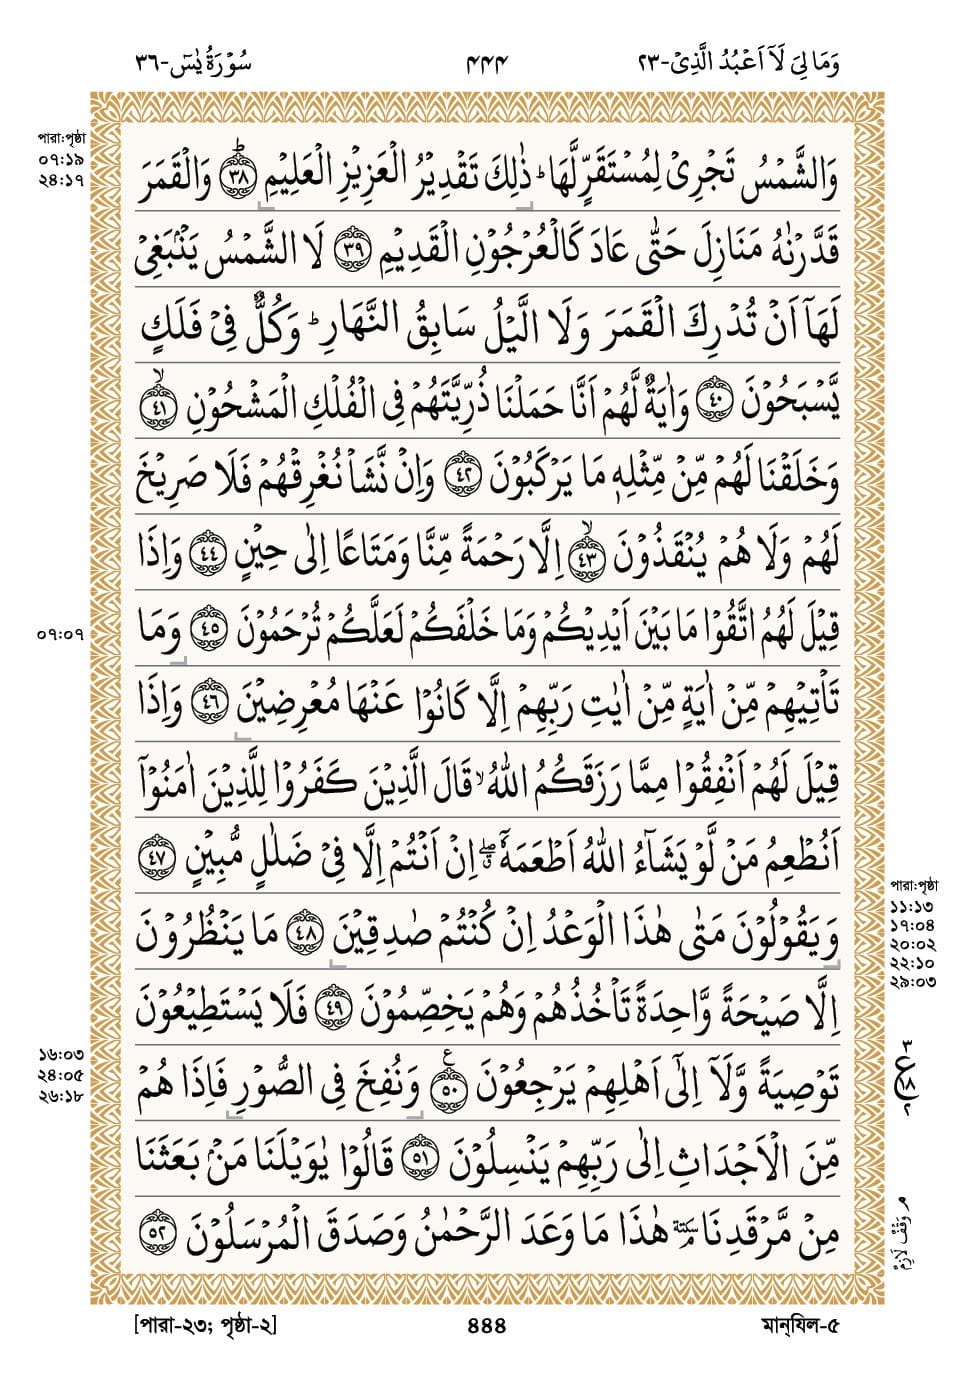 وَمَا لِيَ لَاۤ اَعۡبُدُ الَّذِىۡ-٢٣
٤٤٤
سُوۡرَةُ يٰسٓ-٣٦
পারা:পৃষ্ঠা
০৭:১৯
২৪:১৭
وَالشَّمۡسُ تَجۡرِىۡ لِمُسۡتَقَرٍّ لَّهَا ؕ ذٰلِكَ تَقۡدِيۡرُ الۡعَزِيۡزِ الۡعَلِيۡمِ ؕ ٣٨ وَالۡقَمَرَ
قَدَّرۡنٰهُ مَنَازِلَ حَتّٰى عَادَ كَالۡعُرۡجُوۡنِ الۡقَدِيۡمِ ٣٩ لَا الشَّمۡسُ يَنۡۢبَغِىۡ
لَهَاۤ اَنۡ تُدۡرِكَ الۡقَمَرَ وَلَا الَّيۡلُ سَابِقُ النَّهَارِ ؕ وَكُلٌّ فِىۡ فَلَكٍ
يَّسۡبَحُوۡنَ ٤٠ وَاٰيَةٌ لَّهُمۡ اَنَّا حَمَلۡنَا ذُرِّيَّتَهُمۡ فِى الۡفُلۡكِ الۡمَشۡحُوۡنِ ۙ ٤١
وَخَلَقۡنَا لَهُمۡ مِّنۡ مِّثۡلِهٖ مَا يَرۡكَبُوۡنَ ٤٢ وَاِنۡ نَّشَاۡ نُغۡرِقۡهُمۡ فَلَا صَرِيۡخَ
لَهُمۡ وَلَا هُمۡ يُنۡقَذُوۡنَ ۙ ٤٣ اِلَّا رَحۡمَةً مِّنَّا وَمَتَاعًا اِلٰى حِيۡنٍ ٤٤ وَاِذَا
০৭:০৭
قِيۡلَ لَهُمُ اتَّقُوۡا مَا بَيۡنَ اَيۡدِيۡكُمۡ وَمَا خَلۡفَكُمۡ لَعَلَّكُمۡ تُرۡحَمُوۡنَ ٤٥ وَمَا
تَاۡتِيۡهِمۡ مِّنۡ اٰيَةٍ مِّنۡ اٰيٰتِ رَبِّهِمۡ اِلَّا كَانُوۡا عَنۡهَا مُعۡرِضِيۡنَ ٤٦ وَاِذَا
قِيۡلَ لَهُمۡ اَنۡفِقُوۡا مِمَّا رَزَقَكُمُ اللّٰهُ ۙ قَالَ الَّذِيۡنَ كَفَرُوۡا لِلَّذِيۡنَ اٰمَنُوۡۤا
اَنُطۡعِمُ مَنۡ لَّوۡ يَشَآءُ اللّٰهُ اَطۡعَمَهٗۤ ۖ اِنۡ اَنۡتُمۡ اِلَّا فِىۡ ضَلٰلٍ مُّبِيۡنٍ ٤٧
পারা:পৃষ্ঠা
১১:১৩
১৭:০৪
২০:০২
২২:১০
২৯:০৩
وَيَقُوۡلُوۡنَ مَتٰى هٰذَا الۡوَعۡدُ اِنۡ كُنۡتُمۡ صٰدِقِيۡنَ ٤٨ مَا يَنۡظُرُوۡنَ
اِلَّا صَيۡحَةً وَّاحِدَةً تَاۡخُذُهُمۡ وَهُمۡ يَخِصِّمُوۡنَ ٤٩ فَلَا يَسۡتَطِيۡعُوۡنَ
১৬:০৩
২৪:০৫
২৬:১৮
تَوۡصِيَةً وَّلَاۤ اِلٰٓى اَهۡلِهِمۡ يَرۡجِعُوۡنَ ٥٠ ع وَنُفِخَ فِى الصُّوۡرِ فَاِذَا هُمۡ
مِّنَ الۡاَجۡدَاثِ اِلٰى رَبِّهِمۡ يَنۡسِلُوۡنَ ٥١ قَالُوۡا يٰوَيۡلَنَا مَنۡۢ بَعَثَنَا
مِنۡ مَّرۡقَدِنَا سكتة م هٰذَا مَا وَعَدَ الرَّحۡمٰنُ وَصَدَقَ الۡمُرۡسَلُوۡنَ ٥٢
وَقۡفِ لَازِمۡ
[পারা-২৩; পৃষ্ঠা-২]
৪৪৪
মান্‌যিল-৫